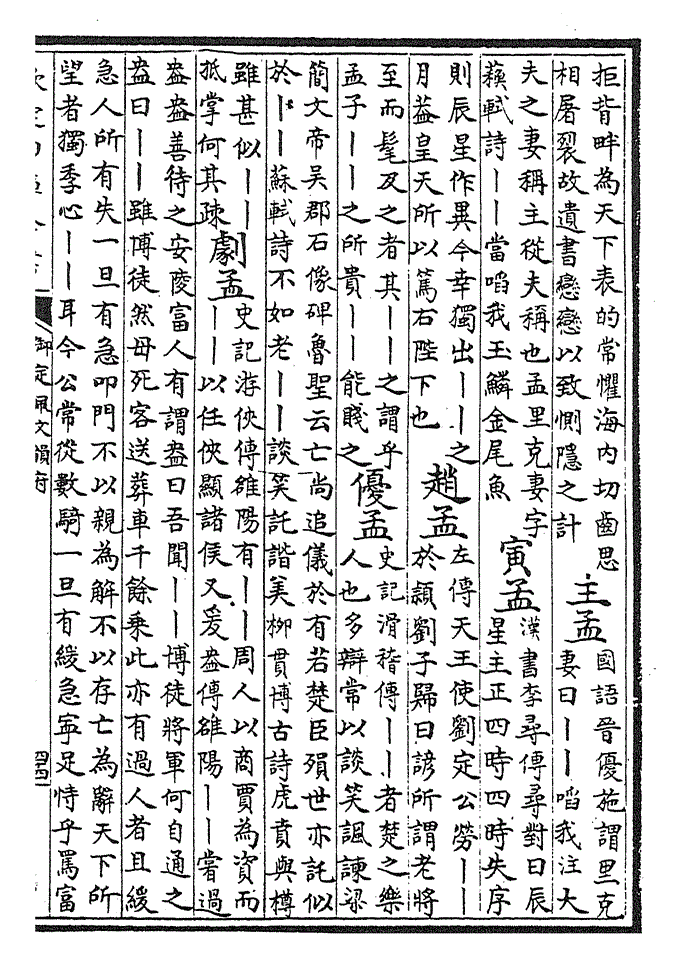 拒背畔為天下表的常懼海内切齒思
相屠裂故遺書戀戀以致惻隱之計
主孟
國語晉優施謂里克
妻曰丨丨啗我注大
夫之妻稱主從夫稱也孟里克妻字
蘇軾詩丨丨當啗我玉鱗金尾魚
寅孟
漢書李尋傳尋對曰辰
星主正四時四時失序
則辰星作異今幸獨出丨丨之
月葢皇天所以篤右陛下也
趙孟
左傳天王使劉定公勞丨丨
於潁劉子歸曰諺所謂老將
至而髦及之者其丨丨之謂乎
孟子丨丨之所貴丨丨能賤之
優孟
史記滑稽傳丨丨者楚之樂
人也多辯常以談笑諷諫梁
簡文帝吳郡石像碑魯聖云亡尚追儀於有若楚臣殞世亦託似
於丨丨蘇軾詩不如老丨丨談笑託諧美柳貫博古詩虎賁與樽
雖甚似丨丨
抵掌何其疎
劇孟
史記游俠傳雒陽有丨丨周人以商賈為資而
丨丨以任俠顯諸侯又爰盎傳雒陽丨丨嘗過
盎盎善待之安陵富人有謂盎曰吾聞丨丨博徒將軍何自通之
盎曰丨丨雖博徒然母死客送葬車千餘乗此亦有過人者且緩
急人所有失一旦有急叩門不以親為解不以存亡為辭天下所
望者獨季心丨丨耳今公常從數騎一旦有緩急寧足恃乎罵富
御定佩文韻府